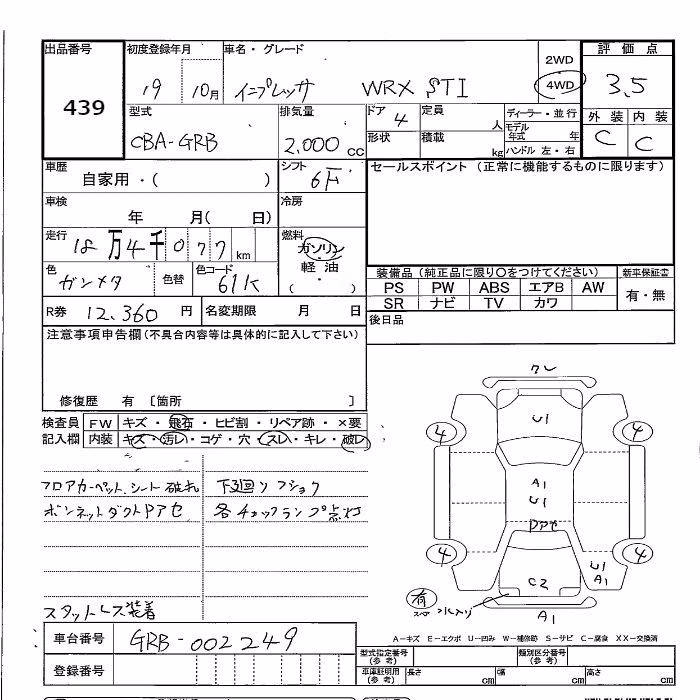 出品番号
439
初度登録年月
19
10月
車名・グレード
WRX STI
2WD
4WD
評価点
3.5
外装
内装
C
C
型式
CBA-GRB
排気量
2.000 cc
ドア
4
形状
定員
人
積載
kg
ディーラー・並行
モデル年式
年
ハンドル 左・右
車歴
自家用・( )
シフト
6F
セールスポイント(正常に機能するものに限ります)
車検
年 月( 日)
冷房
走行
18万4千077km
燃料
ガソリン
軽油
( ・ )
色
ガンメタ
色替
色コード
61K
装備品(純正品に限り〇をつけてください)
新車保証書
PS PW ABS エアB AW
SR ナビ TV カワ
有・無
R券
12.360 円
名変期限
月 日
後日品
注意事項申告欄(不具合内容等は具体的に記入して下さい)
修復歴 有 〔箇所 〕
検査員
記入欄
FW
キズ・飛石・ヒビ割・リペア跡・×要
内装
キズ・汚レ・コゲ・穴・スレ・キレ・破レ
フロアカーペット、シート破れ
下廻り
ボンネットダクトPアセ
各チェックランプ点灯
スタットレス装着
車台番号
GRB-002249
登録番号
U1
4
4
A1
U1
Pアセ
4
4
U1
A1
C2
有
A1
A-キズ E-エクボ U-凹み W-補修跡 S-サビ C-腐食 XX-交換済
型式指定番号
(参考)
類別区分番号
(参考)
車庫証明用
(参考)
長さ
cm
幅
cm
高さ
cm